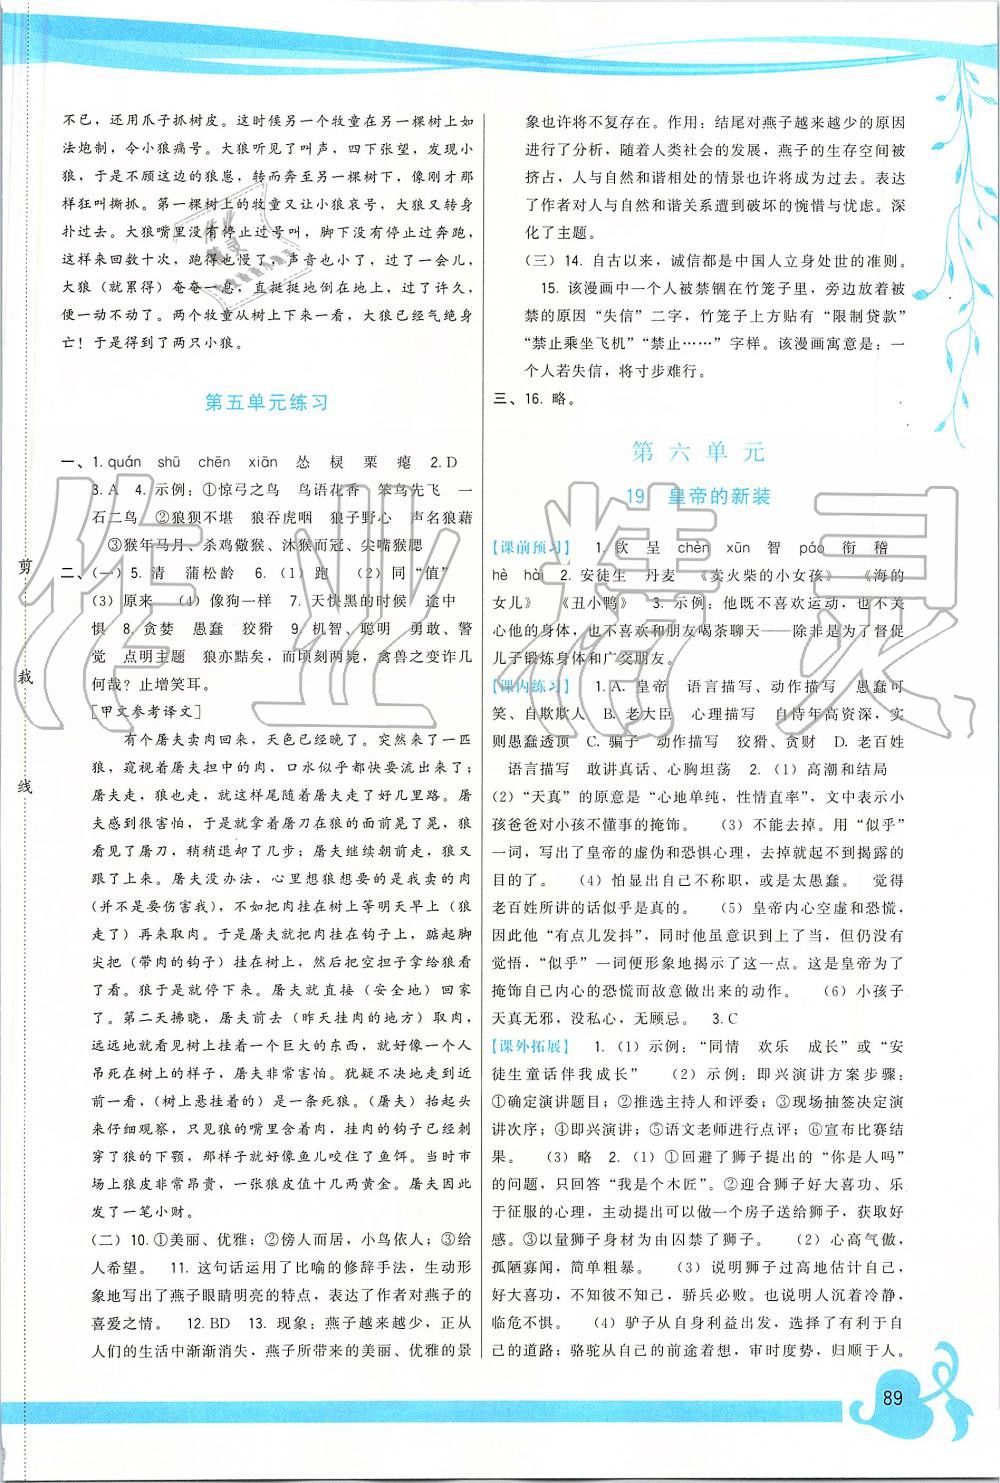 不已，还用爪子抓树皮。这时候另一个牧童在另一棵树上如
法炮制，令小狼痛号。大狼听见了叫声，四下张望，发现小
狼，于是不顾这边的狼崽，转而奔至另一棵树下，像刚才那
样狂叫撕抓。第一棵树上的牧童又让小狼哀号，大狼又转身
扑过去。大狼嘴里没有停止过号叫，脚下没有停止过奔跑，
这样来回数十次，跑得也慢了，声音也小了。过了一会儿，
大狼（就累得）奄奄一息，直挺挺地倒在那儿，过了许久，
便一动不动了。两个牧童从树上下来一看，大狼已经气绝身
亡！于是得到了两只小狼。
第五单元练习
一、1. quán shū chēn xiān 怂 棂 栗 瘪 2. D
3. A 4. 示例：①惊弓之鸟 鸟语花香 笨鸟先飞 一
石二鸟 ②狼狈不堪 狼吞虎咽 狼子野心 声名狼藉
③猴年马月、杀鸡儆猴、沐猴而冠、尖嘴猴腮
二、（一）5. 清 蒲松龄 6.（1）跑 （2）同“值”
（3）原来 （4）像狗一样 7. 天快黑的时候 途中
惧 8. 贪婪 愚蠢 狡猾 9. 机智、聪明 勇敢、警
觉 点明主题 狼亦黠矣，而顷刻两毙，禽兽之变诈几
何哉？止增笑耳。
［甲文参考译文］
有个屠夫卖肉回来，天色已经晚了。突然来了一匹
狼，窥视着屠夫担中的肉，口水似乎都快要流出来了。
屠夫走，狼也走，就这样尾随着屠夫走了好几里路。屠
夫感到很害怕，于是就拿着屠刀在狼的面前晃了晃，狼
看见了屠刀，稍稍退却了几步；屠夫继续朝前走，狼又
跟了上来。屠夫没办法，心里想狼想要的是我卖的肉
（并不是要伤害我），不如把肉挂在树上等明天早上（狼
走了）再来取肉。于是屠夫就把肉挂在钩子上，踮起脚
尖把（带肉的钩子）挂在树上，然后把空担子拿给狼看
了看。狼于是就停下来。屠夫就直接（安全地）回家
了。第二天拂晓，屠夫前去（昨天挂肉的地方）取肉，
远远地就看见树上挂着一个巨大的东西，就好像一个人
吊死在树上的样子，屠夫非常害怕。犹疑不决地走到近
前一看，（树上悬挂着的）是一条死狼。（屠夫）抬起头
来仔细观察，只见狼的嘴里含着肉，挂肉的钩子已经刺
穿了狼的下颚，那样子就好像鱼儿咬住了鱼饵。当时市
场上狼皮非常昂贵，一张狼皮值十几两黄金。屠夫因此
发了一笔小财。
（二）10. ①美丽、优雅；②傍人而居，小鸟依人；③给
人希望。 11. 这句话运用了比喻的修辞手法，生动形
象地写出了燕子眼睛明亮的特点，表达了作者对燕子的
喜爱之情。 12. BD 13. 现象：燕子越来越少，正从
人们的生活中渐渐消失，燕子所带来的美丽、优雅的景
象也许将不复存在。作用：结尾对燕子越来越少的原因
进行了分析，随着人类社会的发展，燕子的生存空间被
挤占，人与自然和谐相处的情景也许将成为过去。表达
了作者对人与自然和谐关系遭到破坏的惋惜与忧虑。深
化了主题。
（三）14. 自古以来，诚信都是中国人立身处世的准则。
15. 该漫画中一个人被禁锢在竹笼子里，旁边放着被
禁的原因“失信”二字，竹笼子上方贴有“限制贷款”
“禁止乘坐飞机”“禁止……”字样。该漫画寓意是：一
个人若失信，将寸步难行。
三、16. 略。
第六单元
19 皇帝的新装
【课前预习】 1. 钦 呈 chèn xūn 智 páo 衔 稽
hè hài 2. 安徒生 丹麦 《卖火柴的小女孩》 《海的
女儿》 《丑小鸭》 3. 示例：他既不喜欢运动，也不关
心他的身体，也不喜欢和朋友喝茶聊天——除非是为了督促
儿子锻炼身体和广交朋友。
【课内练习】 1. A. 皇帝 语言描写、动作描写 愚蠢可
笑、自欺欺人 B. 老大臣 心理描写 自恃年高资深，实
则愚蠢透顶 C. 骗子 动作描写 狡猾、贪财 D. 老百姓
语言描写 敢讲真话、心胸坦荡 2.（1）高潮和结局
（2）“天真”的原意是“心地单纯，性情直率”，文中表示小
孩爸爸对小孩不懂事的掩饰。 （3）不能去掉。用“似乎”
一词，写出了皇帝的虚伪和恐惧心理，去掉就起不到揭露的
目的了。 （4）怕显出自己不称职，或是太愚蠢。 觉得
老百姓所讲的话似乎是真的。 （5）皇帝内心空虚和恐慌，
因此他“有点儿发抖”，同时他虽意识到上了当，但仍没有
觉悟，“似乎”一词便形象地揭示了这一点。这是皇帝为了
掩饰自己内心的恐慌而故意做出来的动作。 （6）小孩子
天真无邪，没私心，无顾忌。 3. C
【课外拓展】 1.（1）示例：“同情 欢乐 成长”或“安
徒生童话伴我成长” （2）示例：即兴演讲方案步骤：
①确定演讲题目；②推选主持人和评委；③现场抽签决定演
讲次序；④即兴演讲；⑤语文老师进行点评；⑥宣布比赛结
果。 （3）略 2.（1）①回避了狮子提出的“你是人吗”
的问题，只回答“我是个木匠”。②迎合狮子好大喜功、乐
于征服的心理，主动提出可以做一个房子送给狮子，获取好
感。③以量狮子身材为由囚禁了狮子。 （2）心高气傲，
孤陋寡闻，简单粗暴。 （3）说明狮子过高地估计自己，
好大喜功，不知彼不知己，骄兵必败。也说明人沉着冷静，
临危不惧。 （4）驴子从自身利益出发，选择了利于自己
的道路；骆驼从自己的前途着想，审时度势，归顺于人。
剪
裁
线
89
作业精灵